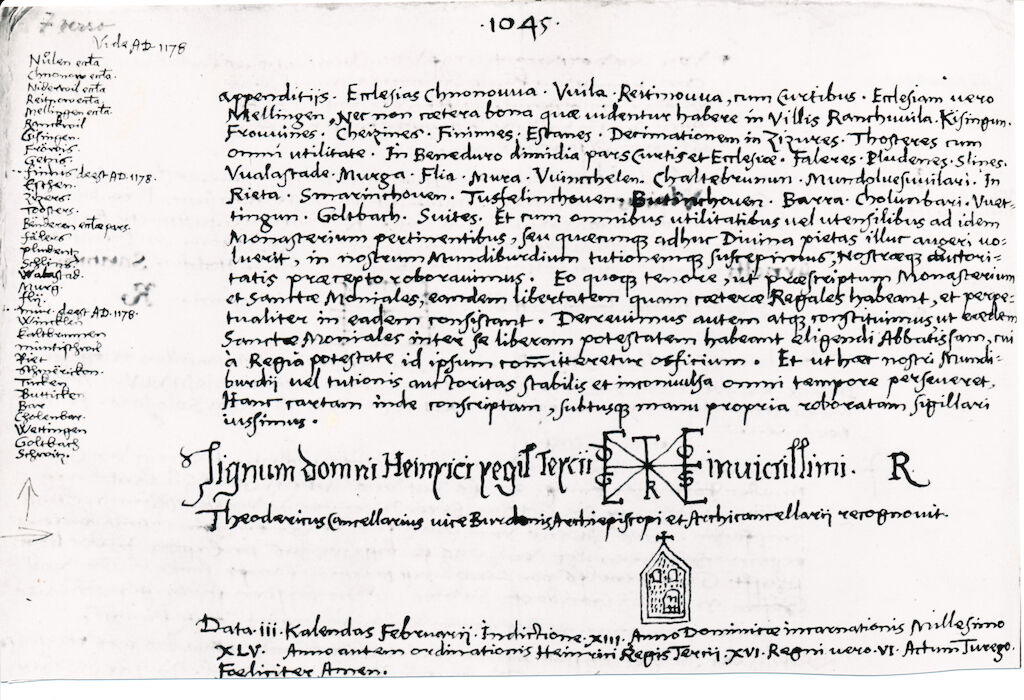 7 verso
·1045·
Vide AD 1178
Nůlen eccla
Chnonow eccla.
Niderwil eccla
Reitnow eccla
Mellingen eccla.
Ranckwil
Gisingen.
Fröwis.
Getzis.
Finnis deest AD. 1178.
Eschen.
Zizers.
Toosters.
Benderen eccłæ pars.
Fälers
pludentz
Sellins.
Walastad.
Murg.
Flij.
Mur. deest AD. 1178.
Wincklen
Kaltbrunnen
Riet
Schmericken.
Tucken
Butticken
Bar
Cholenbar.
Wettingen
Goltbach
Schweitz.
appenditijs. Ecclesias Chnonouua. Vuila. Reitinouua, cum Curtibus. Ecclesiam uero
Mellingen, Nec non cætera bona quæ uidentur habere in Villis Ranchuuila. Kisingun.
Frouuines. Cheizines. Finimes. Estanes. Decimationem in Zizures. Thosteres cum
omni utilitate. In Beneduro dimidia pars Curtis et Ecclesiæ. Faleres. Pludenes. Slines.
Vualastade. Murga. Flia. Mura. Vuincchelen. Chaltebrunun. Mundoluesuuilari. In
Rieta. Smarinchoven. Tusselinchoven. Butinchoven. Barra. Cholunbari. Vuet-
tingun. Goltbach. Suites. Et cum omnibus utilitatibus uel utensilibus ad idem
Monasterium pertinentibus, seu quæcunque adhuc Divina pietas illuc augeri uo-
luerit, in nostrum Mundiburdium tutionemq; suscepimus, Nostræq; auctori-
tatis præcepto roboravimus. Eo quoque tenore, ut præscriptum Monasterium
et Sanctæ Moniales, eandem libertatem quam cæteræ Regales habeant, et perpe-
tualiter in eadem consistant. Decrevimus autem atq; constituimus, ut eædem
Sanctæ Moniales inter se liberam potestatem habeant eligendi Abbatissam, cui
à Regia potestate id ipsum com̃itteretur officium. Et ut hæc nostri Mundi-
burdij uel tutionis auctoritas stabilis et inconvulsa omni tempore perseveret,
Hanc cartam inde conscriptam, subtusq; manu propria roboratam sigillari
iussimus.
Signum domni Heinrici regis Tercii invictissimi. R
Theodericus Cancellarius uice Bardonis Archiepiscopi et Archicancellarij recognovit.
Data iii. Kalendas Februarij. Indictione. XIII. Anno Dominicæ incarnationis Millesimo
XLV. Anno autem ordinationis Heinrici Regis Tercij. XVI. Regni vero. VI. Actum Turego.
Fœliciter Amen.